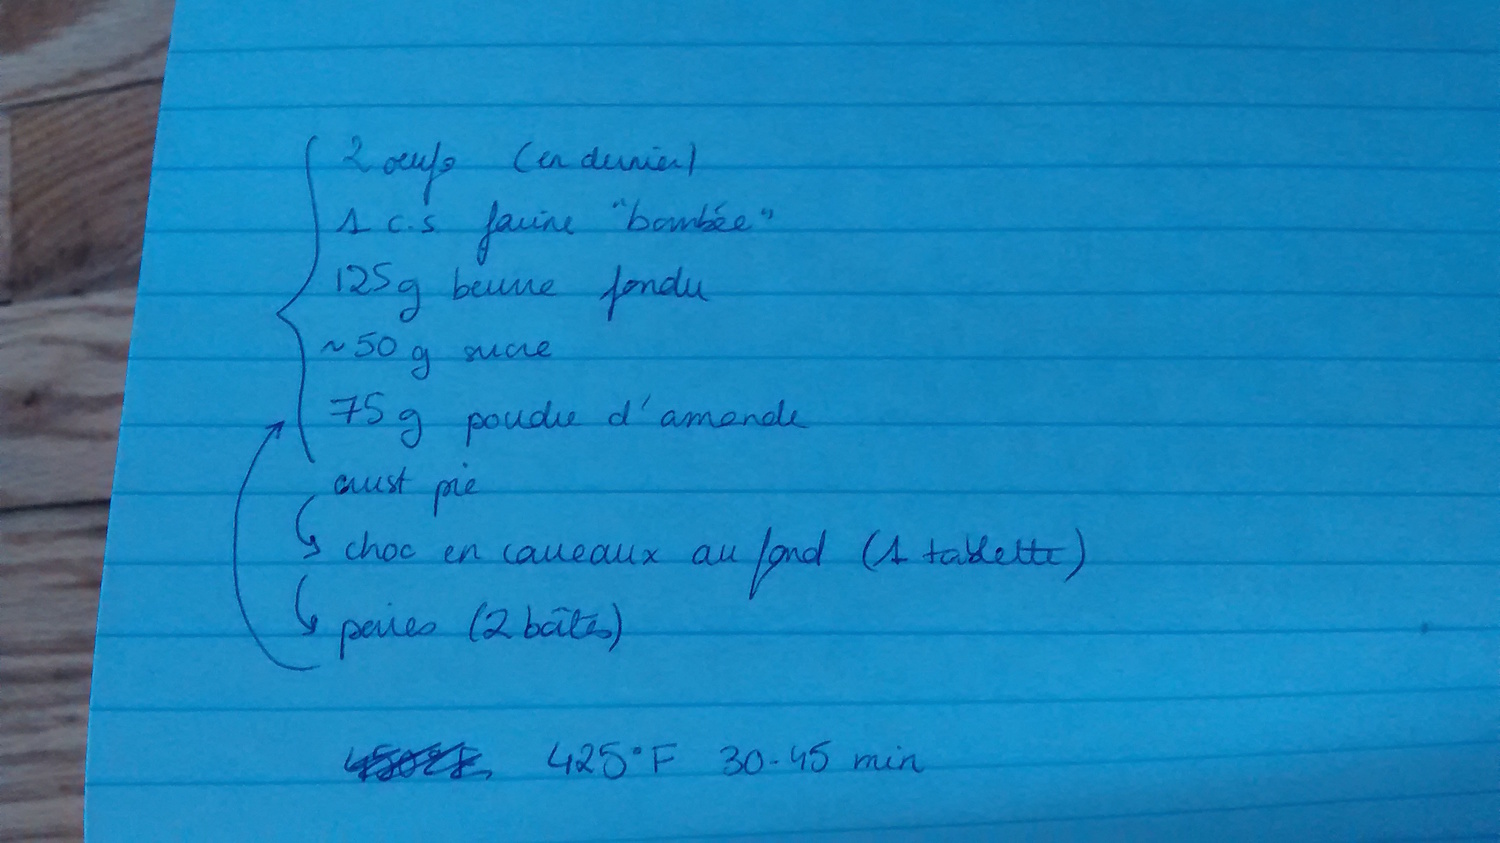 2 oeufs (en dernier)
1 c.s. farine "bombée"
125g beurre fondu
~50 g sucre
75 g poudre d'amande
crust pie
choc en carreaux au fond (1 tablette)
poires (2 boîtes)
450°F 425°F 30-45 min